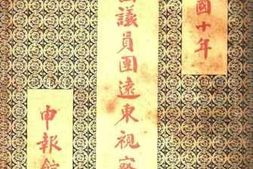 國十年
議員團遠東視察
申報館